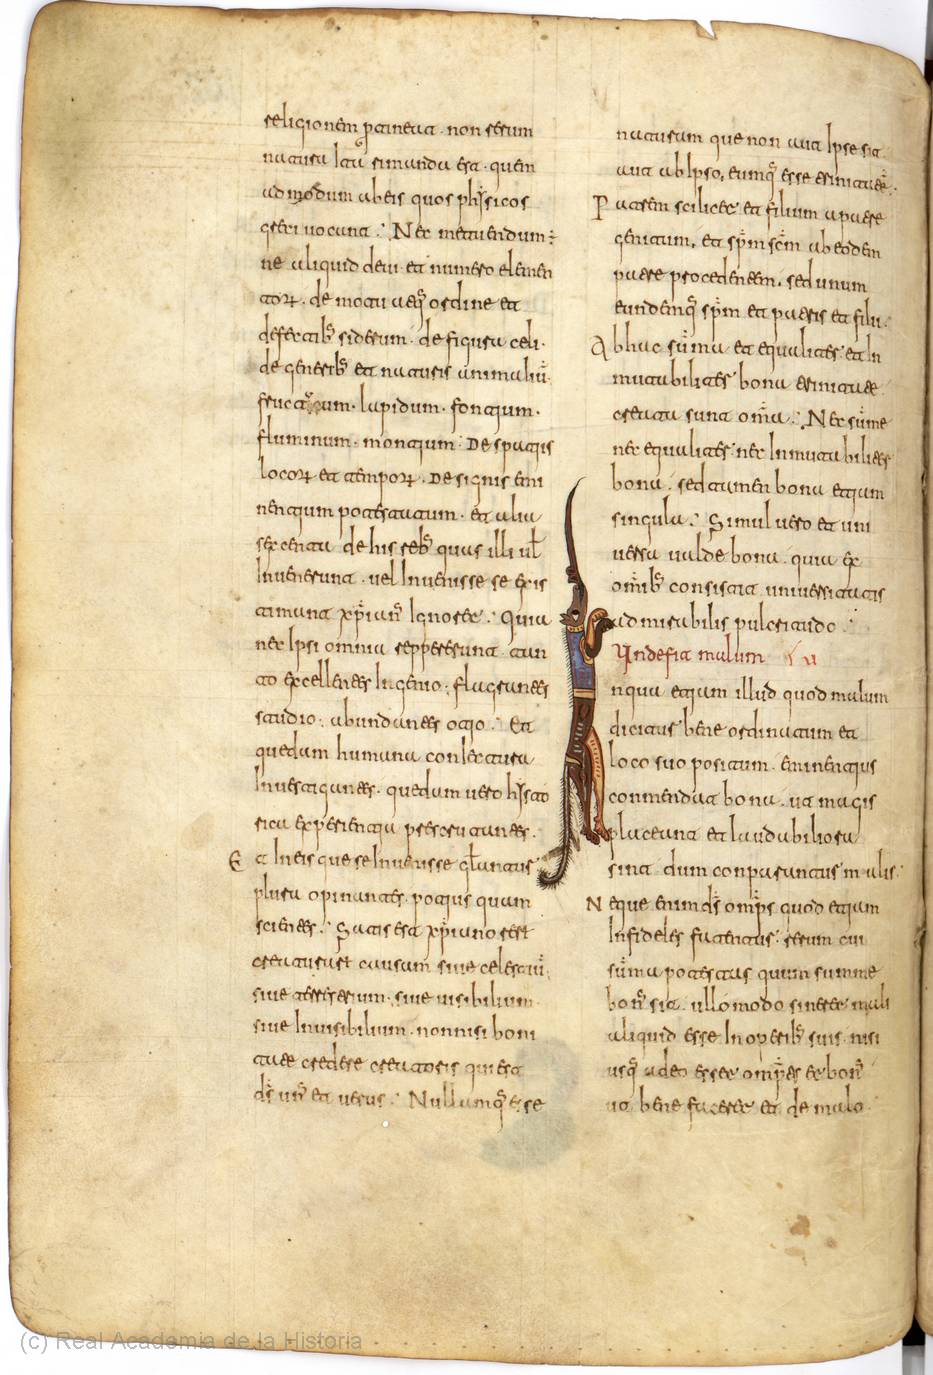 religionem ꝑtineat · non rerum
natura Ita rimanda est · quem
admodum ab eis quos phisicos
greci uocant · Nec metuendum :
ne aliquid de ui et numero elemen
torꝝ · de motu atq; ordine et
defectib; siderum · de figura celi ·
de generib; et naturis animaliū ·
fructicum · lapidum · fontium ·
fluminum · montium · De spatiis
locorꝝ et temporꝝ · De signis emi
nentium potestatum · et alia
sexcenta de his reb; quas illi uł
Inuenerunt · uel Inuenisse se exis
timant xp̄ian; Ignoret · Quia
nec Ipsi omnia reppererunt · tan
to excellentes Ingenio · flagrantes
studio · abundantes otio · Et
quedam humana coniectura
Inuestigantes · quedam uero histo
rica experientia perscrutantes ·
Et In eis que se Inuenisse głantur
plura opinantes · potius quam
scientes · Satis est xp̄iano rerū
creatarū causam siue celestiū ·
siue terrestrium · siue uisibilium
siue Inuisibilium · nonnisi boni
tate credere creatoris qui est
ds̄ un; et uerus · Nullamq; esse
naturam que non aut Ipse sit
aut ab Ipso, eumq; esse trinitatē ·
Patrem scilicet et filium a patre
genitum, et sp̄m sc̄m ab eodem
patre procedentem, sed unum
eundemq; sp̄m et patris et filii ·
Ab hac sūma et equaliter et In
mutabiliter bona trinitate
creata sunt om̄a · Nec sūme
nec equaliter nec Inmutabiliter
bona · sed tamen bona etiam
singula · Simul uero et uni
uersa ualde bona · quia ex
om̄ib; consistit uniuersitatis
admirabilis pulcritudo ·
Unde sit malum
In qua etiam illud quod malum
dicitur bene ordinatum et
loco suo positum · eminentius
conmendat bona · ut magis
placeant et laudabiliora
sint dum conparantur malis ·
Neque enim ds̄ omp̄s quod etiam
Infideles fatentur · rerum cui
sūma potestas quum summe
bon; sit · ullo modo sineret mali
aliquid esse In operib; suis · nisi
usq; adeo esset omp̄s et bon;
ut bene faceret et de malo